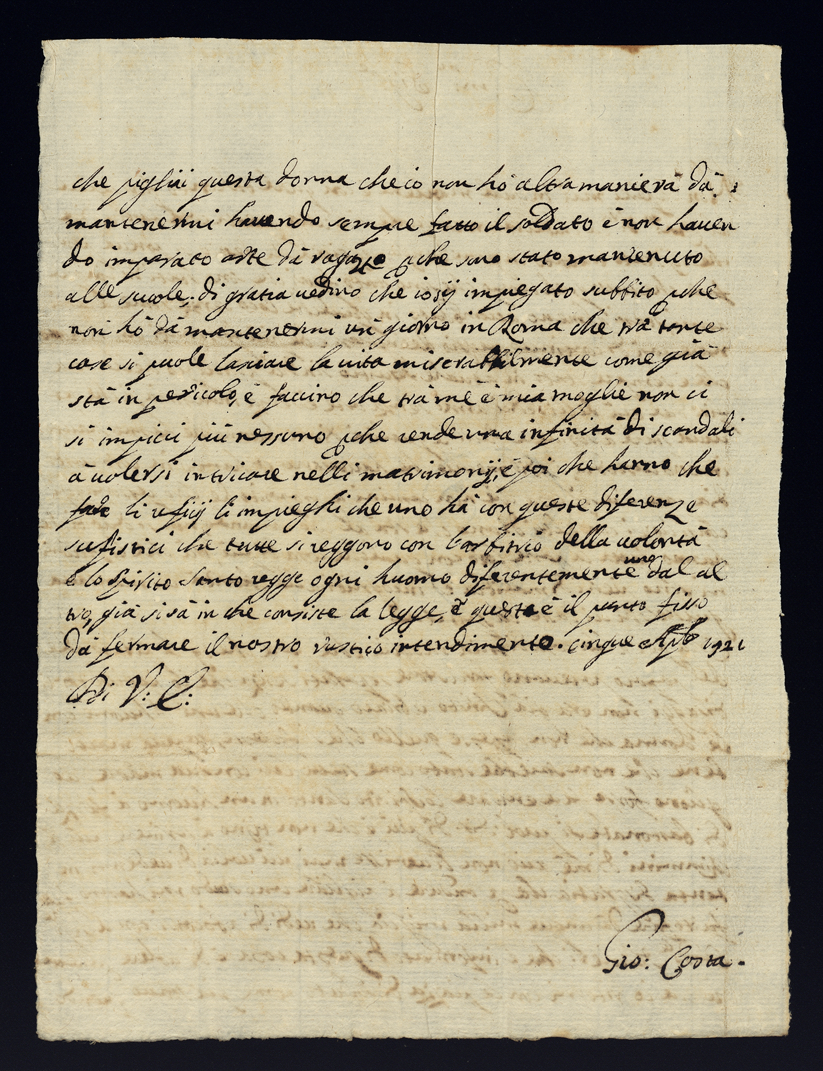 che pigliai questa donna che io non hò altra maniera dà
mantenermi havendo sempre fatto il soldato è non haven
do imparato arte dà ragazzo pche sono stato mantenuto
alle scuole, di gratia vedino che io sij impiegato subbito pche
non hò dà mantenermi un giorno in Roma che trà tante
cose si puole lasciare la vita miserabilmente come già
stà in pericolo, è faccino che trà mè è mia moglie non ci
si impicci più nessuno pche rende una infinità di scandali
à volersi intricare nelli matrimonij, è poi che hanno che
fare li ufitij li impieghi che uno hà con queste diferenze
sufistici che tutte si reggono con l'arbitrio della volontà
è lo Spirito Santo regge ogni huomo diferentemente uno dal al
tro, già si sà in che consiste la legge, è questo è il punto fisso
dà fermare il nostro rustico intendimento. cinque 1721
Di V: E:
Gio: Costa.